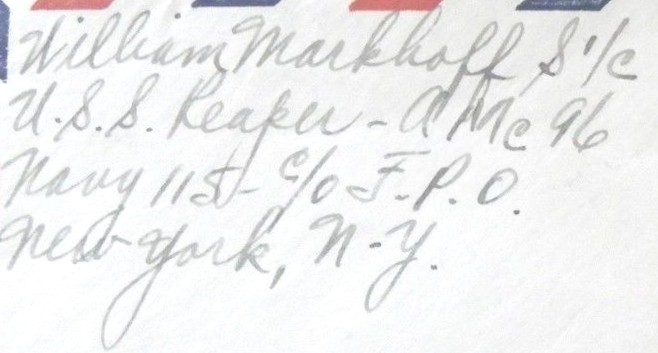 William Markhoff S1/c
U.S.S. Reaper - AMc 96
Navy 115 - c/o F.P.O.
New York, N-Y.